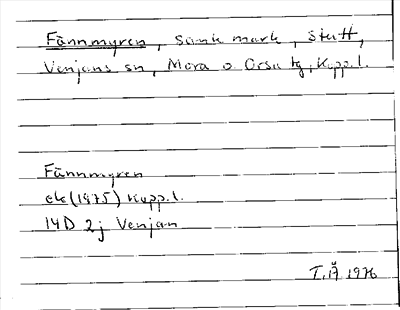 Fännmyren, sank mark, Stutt,
Venjans sn, Mora o Orsa tg, Kopp.l.
Fännmyren
ek (1975) Kopp.l.
14D 2j Venjan
T.Å 1976